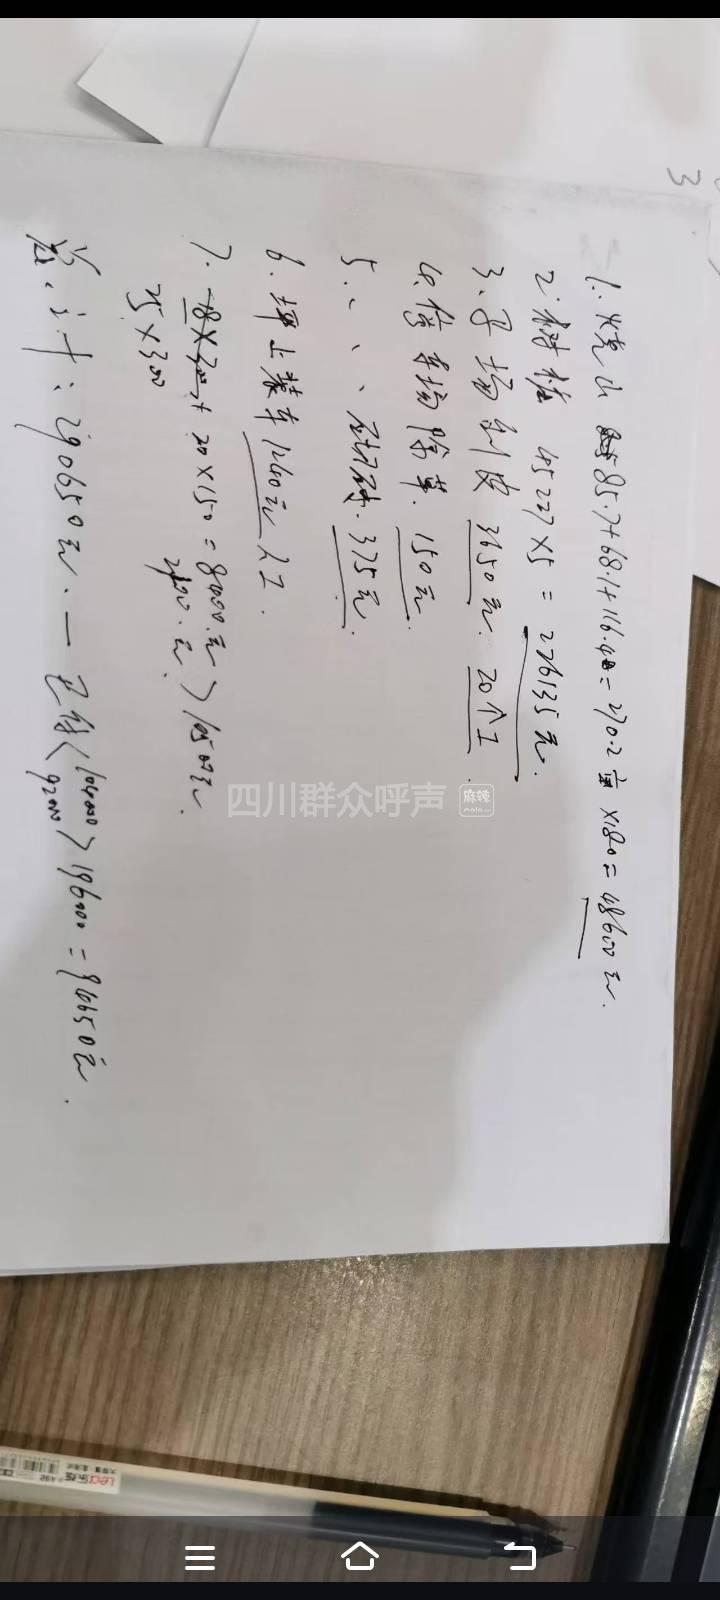 3
1. 烧山 85.7+68.1+116.4=270.2亩×180=48600元.
2. 树桩 45227×5=226135元.
3. 子场剥皮 3650元. 20个工.
4. 场除草. 150元.
5. 、、、 375元.
6. 坪上装车1240元 人工.
7. 20×150=8000元.
25×300
2400元.
10500元.
总计:290650元.一已付
104000
92000
196000=94650元.
四川群众呼声
麻辣